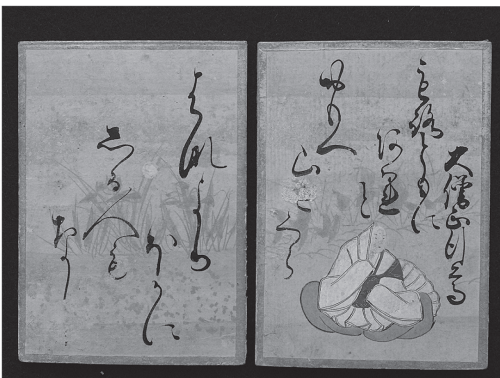 大僧正行尊
もろともに
あはれと
おもへ
山さくら
はなより
ほかに
しる人も
なし